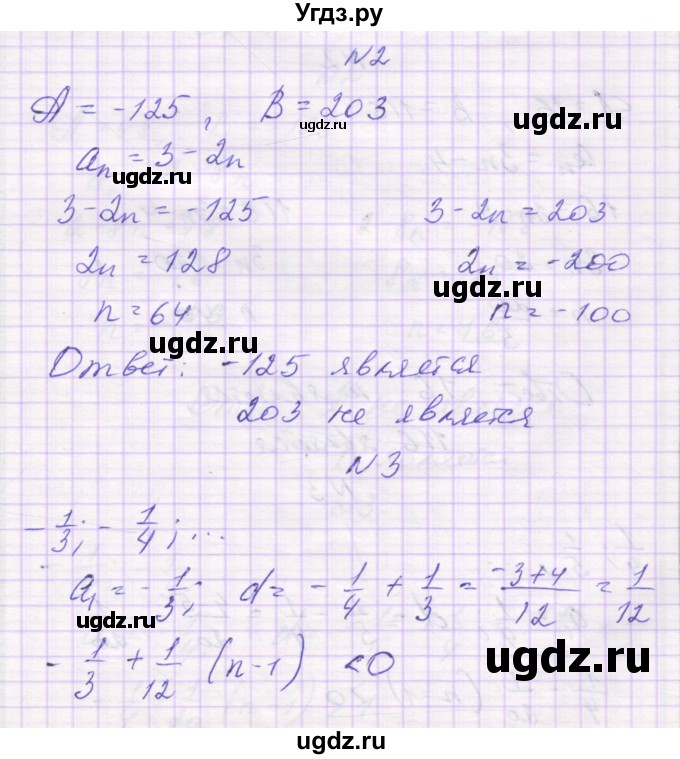 Угдз.ру
N2
A = -125, B = 203
ugdz.ru ugdz.ru
aₙ = 3 - 2n
ugdz.ru
3 - 2n = -125 3 - 2n = 203
2n = 128 2n = -200
ugdz.ru
n = 64 n = -100
ugdz.ru
Ответ: -125 является
203 не является
ugdz.ru
N3
-1/3; -1/4; ...
a₁ = -1/3; d = -1/4 + 1/3 = (-3+4)/12 = 1/12
-1/3 + 1/12 (n-1) < 0
ugdz.ru
ugdz.ru